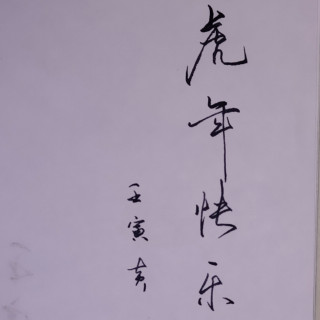 虎年快乐
壬寅